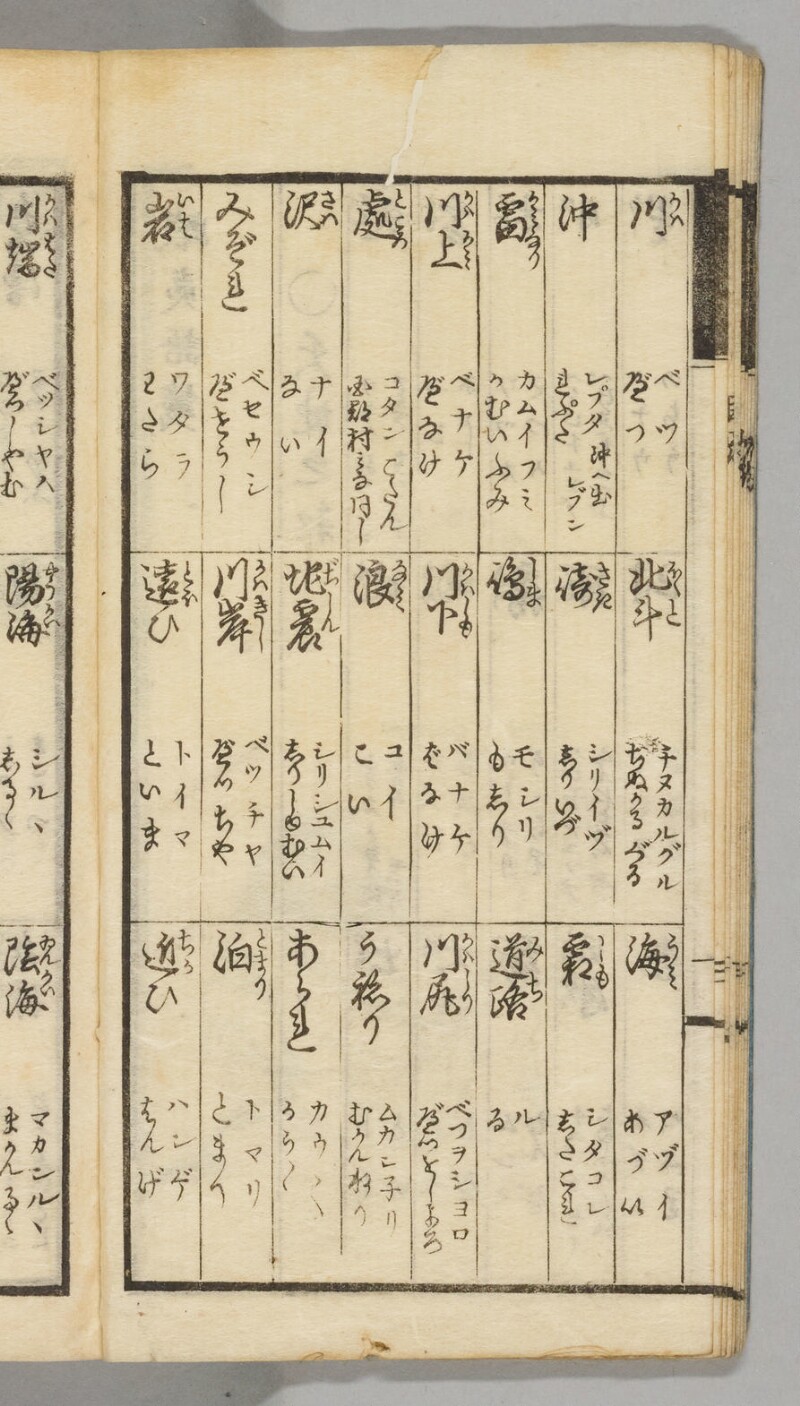 川 かハ
ベツ
べつ
沖
レプタ 沖ヘ出 レブン
れぷた
雷 かミなり
カムイフミ
かむいふみ
川上 かハかミ
ベナケ
べなけ
處 ところ
コタン こたん
国郡村ミな同し
沢 さハ
ナイ
ない
みぞれ
ベセウシ
べせうし
岩 いは
ワタラ
わたら
北斗 ほくと
チヌカルグル
ちぬかるぐる
濤
シリイヅ
しりいづ
嶋 しま
モシリ
もしり
川下 かハしも
バナケ
ばなけ
浪 なミ
コイ
こい
地震 ぢしん
シリシユムイ
しりしゆむい
川岸 かハきし
ベツチヤ
べつちや
遠ひ とほ
トイマ
といま
海 うミ
アヅイ
あづい
霜 しも
シタコレ
したこれ
道路 みち
ル
る
川尻 かハしり
ベツヲシヨロ
べつをしよろ
うねり
ムカンネリ
むかんねり
あられ
カウヽヽ
かうかう
泊 とまり
トマリ
とまり
近ひ ちか
ハンゲ
はんげ
川端 かハはた
ベツシヤハ
べつしやむ
陽海
シルヽ
しるゝ
陰海
マカンルヽ
まかんるゝ